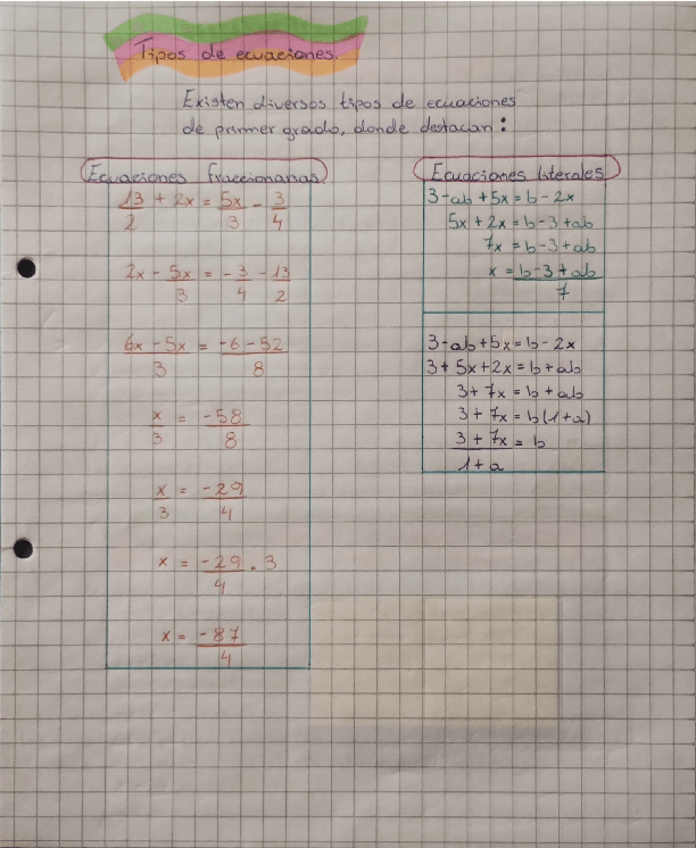 Tipos de ecuaciones.
Existen diversos tipos de ecuaciones
de primer grado, donde destacan:
Ecuaciones fraccionarias
13/2 + 2x = 5x/3 - 3/4
2x - 5x/3 = -3/4 - 13/2
6x - 5x/3 = -6 - 52/8
x/3 = -58/8
x/3 = -29/4
x = -29/4 . 3
x = -87/4
Ecuaciones literales
3-ab+5x=b-2x
5x+2x=b-3+ab
7x=b-3+ab
x=b-3+ab/7
3-ab+5x=b-2x
3+5x+2x=b+ab
3+7x=b+ab
3+7x=b(1+a)
3+7x/1+a=b